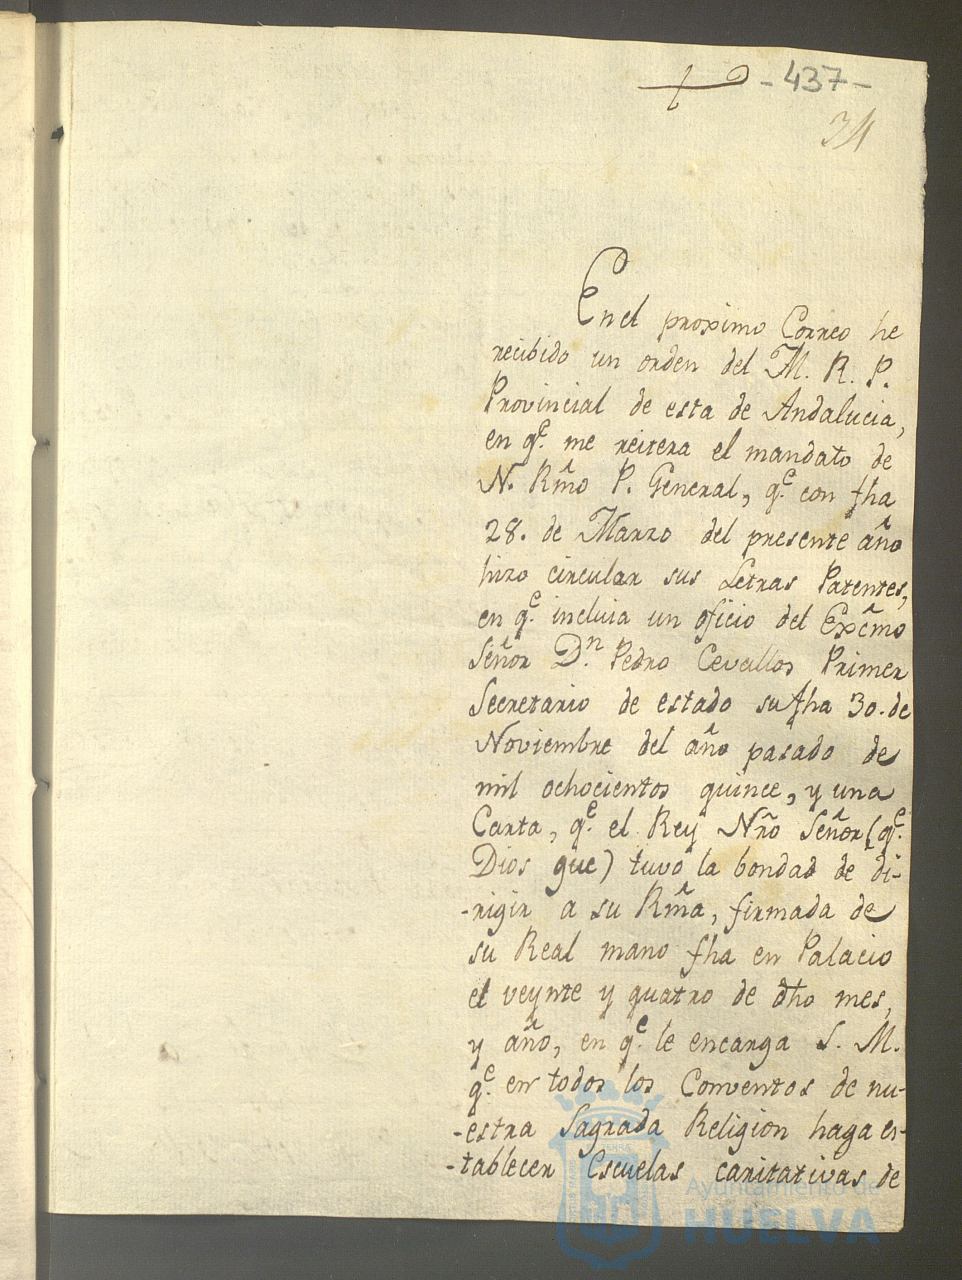 -437-
34
En el proximo Correo he
recibido un orden del M. R. P.
Provincial de esta de Andalucia,
en qe. me reitera el mandato de
N. Rmõ P. General, qe. con fha
28. de Marzo del presente año
hizo circular sus Letras Patentes,
en qe. incluia un oficio del Excmõ
Señor Dn. Pedro Cevallos Primer
Secretario de estado su fha 30. de
Noviembre del año pasado de
mil ochocientos quince, y una
Carta, qe. el Rey Nrõ Señor (qe.
Dios gue) tuvo la bondad de di-
-rigir a su Rmã, firmada de
su Real mano fha en Palacio
el veynte y quatro de dho mes,
y año, en qe. le encarga S. M.
qe. en todos los Conventos de nu-
-estra Sagrada Religion haga es-
-tablecer Escuelas caritativas de
Ayuntamiento de
HUELVA